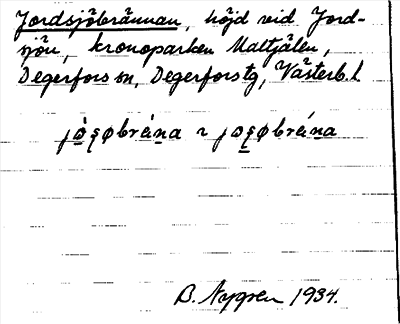 Jordsjöbrännan, höjd vid Jord-
sjön, kronoparken Maltjälen,
Degerfors sn, Degerfors tg, Västerb. l
B. Nygren 1934.